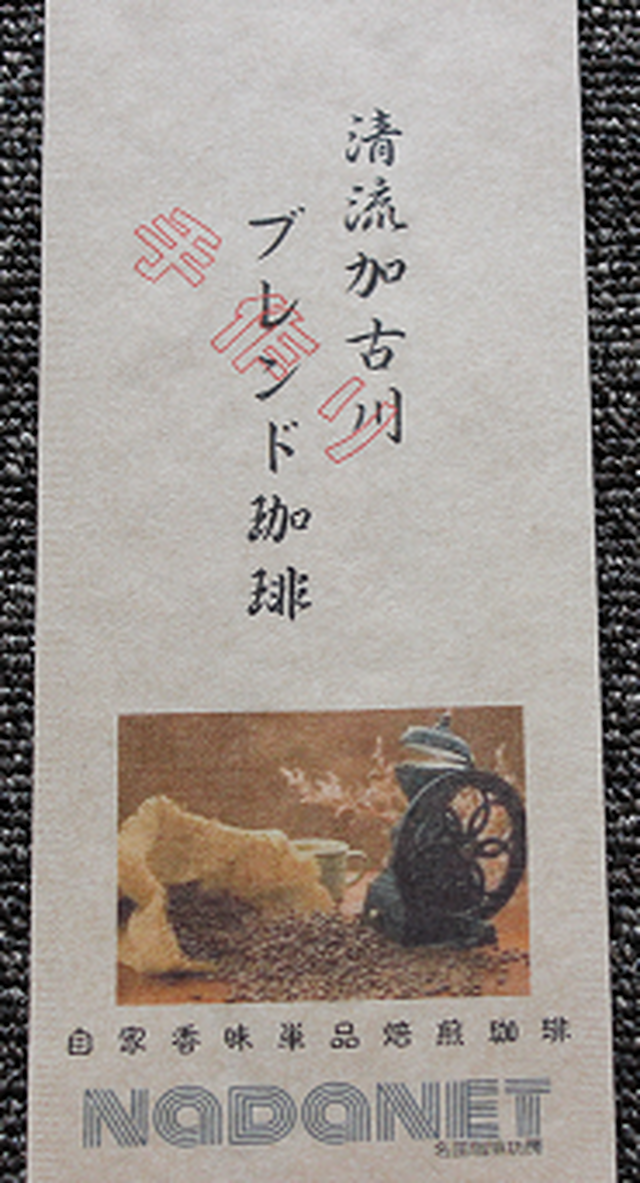 清流加古川
ブレンド珈琲
自家香味単品焙煎珈琲
NADANET